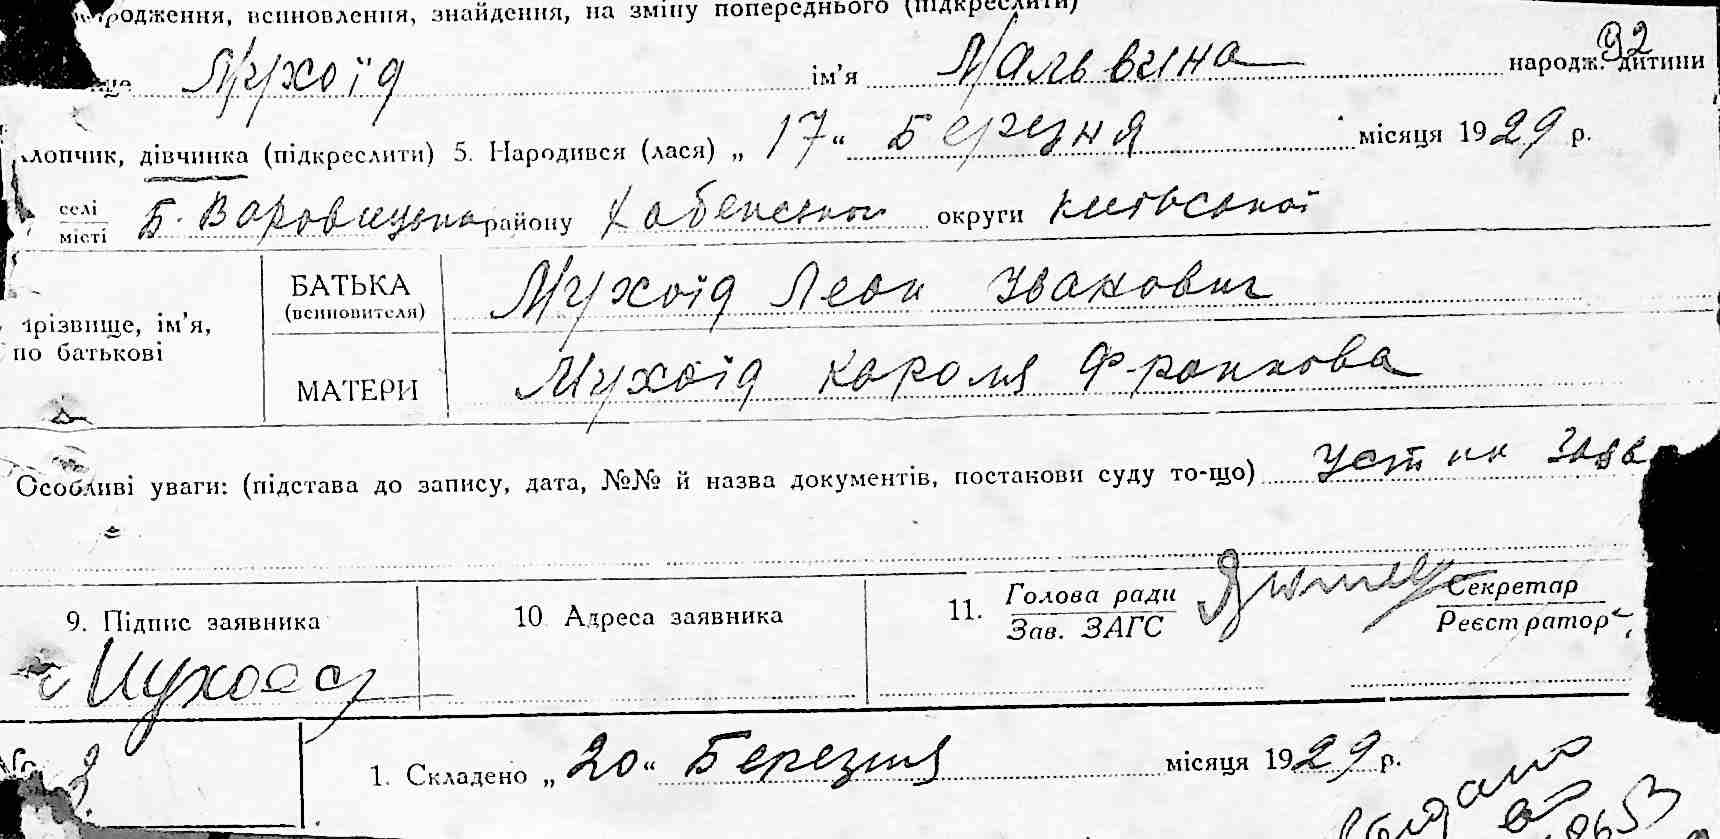 родження, всиновлення, знайдення, на зміну попереднього (підкреслити)
92
Мухоїд ім’я Мальвина народж. дитини
лопчик, дівчинка (підкреслити) 5. Народився (лася) „ 17 “ Березня місяця 1929 р.
селі
місті
Б. Варовицька району Хабенської округи Київської
прізвище, ім’я,
по батькові
БАТЬКА
(всиновителя)
Мухоїд Леон Іванович
МАТЕРИ Мухоїд Кароля Франкова
Особливі уваги: (підстава до запису, дата, №№ й назва документів, постакови суду то-що)
9. Підпис заявника
10 Адреса заявника
11. Голова ради
Зав. ЗАГС
Секретар
Реєстратор
Мухоед
1. Складено „ 20 “ Березня місяця 1929 р.